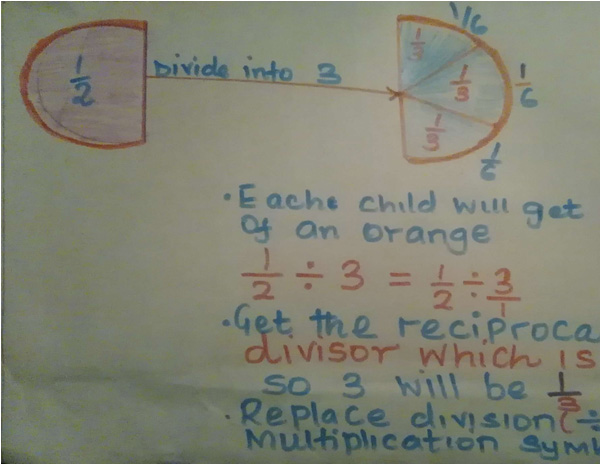 1/6
1/2
Divide into 3
1/3
1/3
1/6
1/3
1/6
• Eache child will get
Of an orange
1/2 ÷ 3 = 1/2 ÷ 3/1
• Get the reciproca
divisor which is
so 3 will be 1/3
• Replace division(÷
Multiplication symb